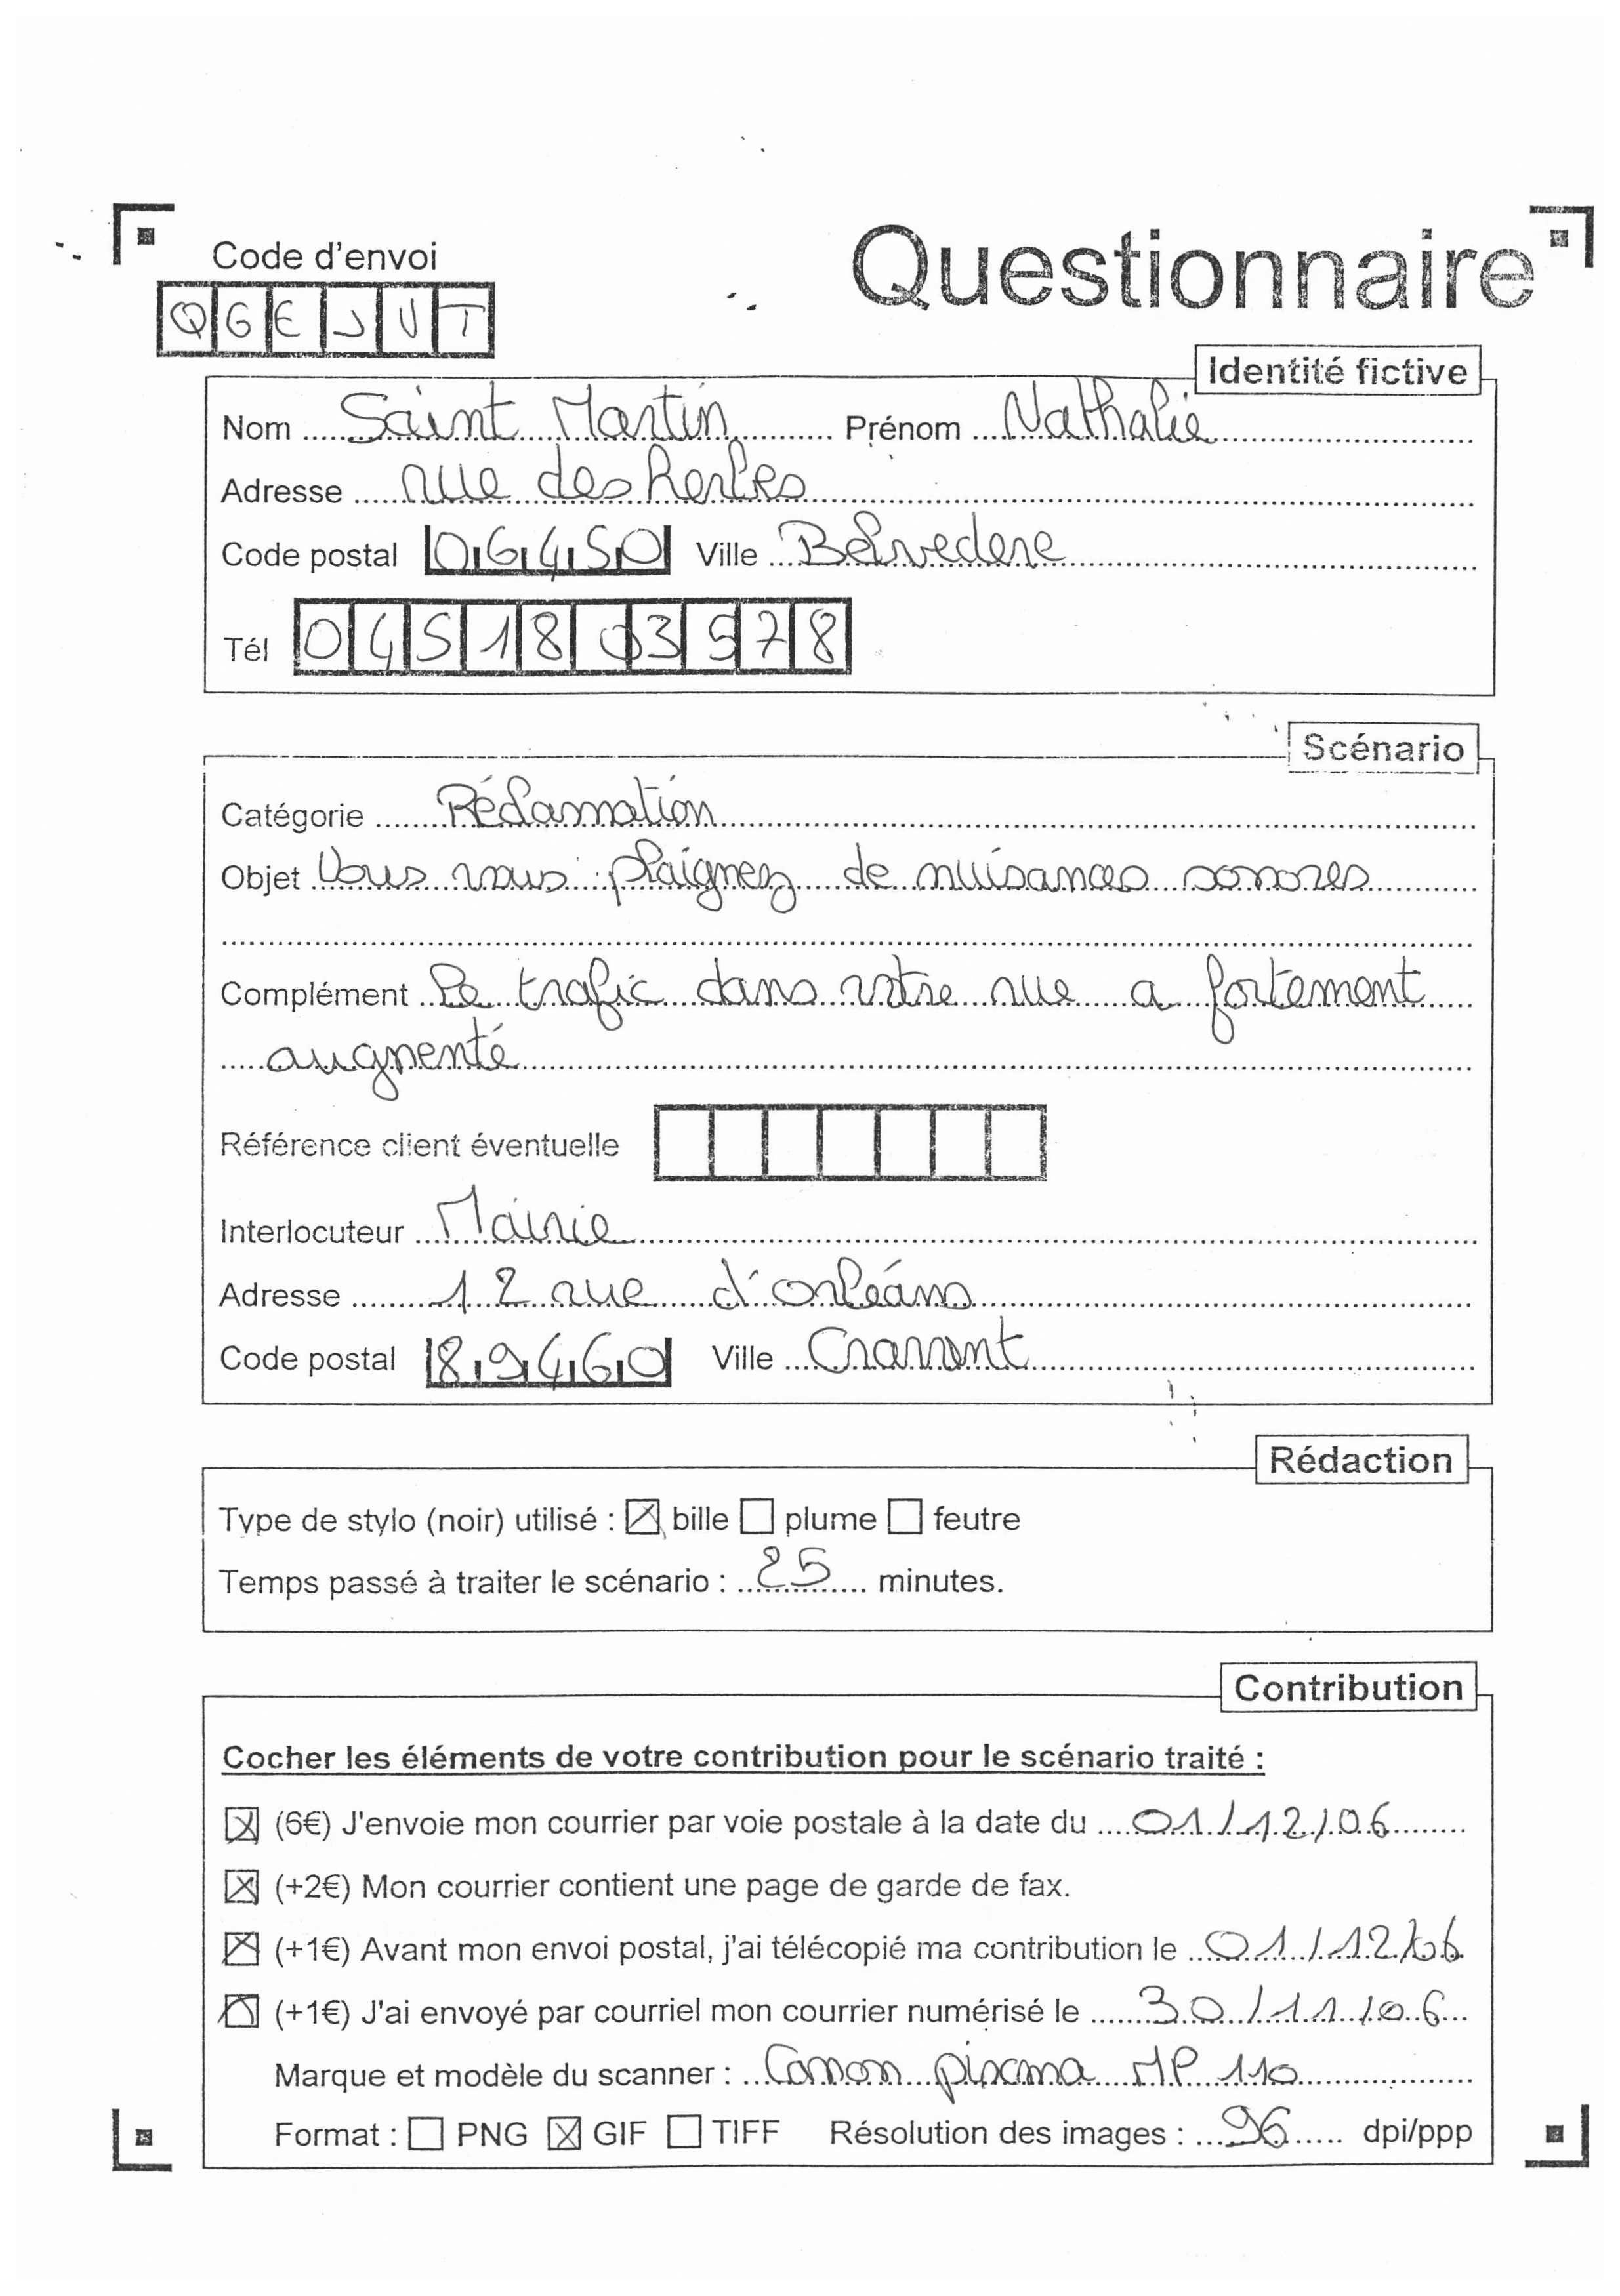 Code d'envoi
Questionnaire
QGEJVT
Identité fictive
Nom Saint Martin Prénom Nathalie
Adresse rue des herbes
Code postal 06450 Ville Belvedere
Tél 0451803578
Scénario
Catégorie Réclamation
Objet Vous vous plaignez de nuisances sonores
Complément le trafic dans votre rue a fortement
augmenté
Référence client éventuelle
Interlocuteur Mairie
Adresse 12 rue d'orléans
Code postal 89460 Ville Cravant
Rédaction
Type de stylo (noir) utilisé : ☒ bille ☐ plume ☐ feutre
Temps passé à traiter le scénario : 25 minutes.
Contribution
Cocher les éléments de votre contribution pour le scénario traité :
☒ (6€) J'envoie mon courrier par voie postale à la date du 01/12/06
☒ (+2€) Mon courrier contient une page de garde de fax.
☒ (+1€) Avant mon envoi postal, j'ai télécopié ma contribution le 01/12/06
☒ (+1€) J'ai envoyé par courriel mon courrier numérisé le 30/11/06
Marque et modèle du scanner : Canon pixma MP 110
Format : ☐ PNG ☒ GIF ☐ TIFF Résolution des images : 96 dpi/ppp